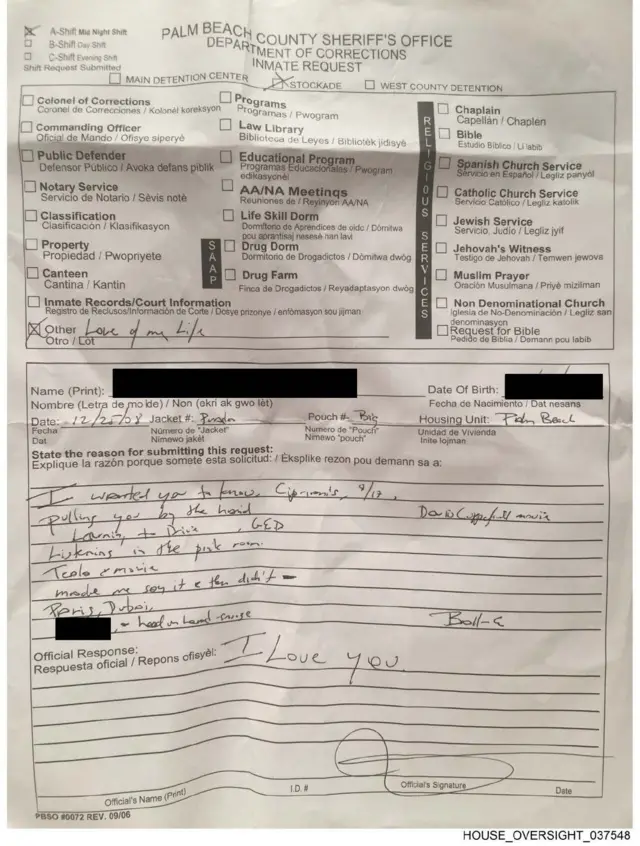 A-Shift Mid Night Shift
B-Shift Day Shift
C-Shift Evening Shift
Shift Request Submitted
PALM BEACH COUNTY SHERIFF'S OFFICE
DEPARTMENT OF CORRECTIONS
INMATE REQUEST
MAIN DETENTION CENTER STOCKADE WEST COUNTY DETENTION
Colonel of Corrections
Coronel de Correcciones / Kolonèl koreksyon
Commanding Officer
Oficial de Mando / Ofisye siperyè
Public Defender
Defensor Público / Avoka defans piblik
Notary Service
Servicio de Notario / Sèvis notè
Classification
Clasificación / Klasifikasyon
Property
Propiedad / Pwopriyete
Canteen
Cantina / Kantin
Inmate Records/Court Information
Registro de Reclusos/Información de Corte / Dosye prizonye / enfòmasyon sou jijman
Other Love of my Life
Otro / Lòt
Programs
Programas / Pwogram
Law Library
Biblioteca de Leyes / Bibliotèk jidisyè
Educational Program
Programas Educacionales / Pwogram
edikasyonèl
AA/NA Meetings
Reuniones de / Reyinyon AA/NA
SAAP
Life Skill Dorm
Dormitorio de Aprendices de oido / Dòmitwa
pou aprantisaj nesesè nan lavi
Drug Dorm
Dormitorio de Drogadictos / Dòmitwa dwòg
Drug Farm
Finca de Drogadictos / Reyadaptasyon dwòg
RELIGIOUS SERVICES
Chaplain
Capellán / Chaplen
Bible
Estudio Biblico / Li labib
Spanish Church Service
Servicio en Español / Legliz panyòl
Catholic Church Service
Servicio Católico / Legliz katolik
Jewish Service
Servicio, Judio / Legliz jyif
Jehovah's Witness
Testigo de Jehova / Temwen jewova
Muslim Prayer
Oración Musulmana / Priyè mizilman
Non Denominational Church
Iglesia de No-Denominación / Legliz san
denominasyon
Request for Bible
Pedido de Biblia / Demann pou labib
Name (Print): Date Of Birth:
Nombre (Letra de molde) / Non (ekri ak gwo lèt) Fecha de Nacimiento / Dat nesans
Date: Jacket #: Pouch #: Housing Unit: Palm Beach
Fecha Número de "Jacket" Numero de "Pouch" Unidad de Vivienda
Dat Nimewo jakèt Nimewo "pouch" Inite lojman
State the reason for submitting this request:
Explique la razón porque somete esta solicitud: / Eksplike rezon pou demann sa a:
I wanted you to know, Cipriani's,
pulling you by the hand David Copperfield movie
Learning to Drive, GED
Listening in the pink room
movie
made me say it & then didn't -
Paris, Dubai,
head in hand
Official Response: I Love you
Respuesta oficial / Repons ofisyèl:
Official's Name (Print) I.D. # Official's Signature Date
PBSO #0072 REV. 09/06
HOUSE_OVERSIGHT_037548